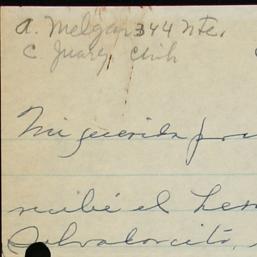 A. Melgar 344 Nte.
C. Juarz, Chih
Mi querida
recibí el
Salvadorcito,